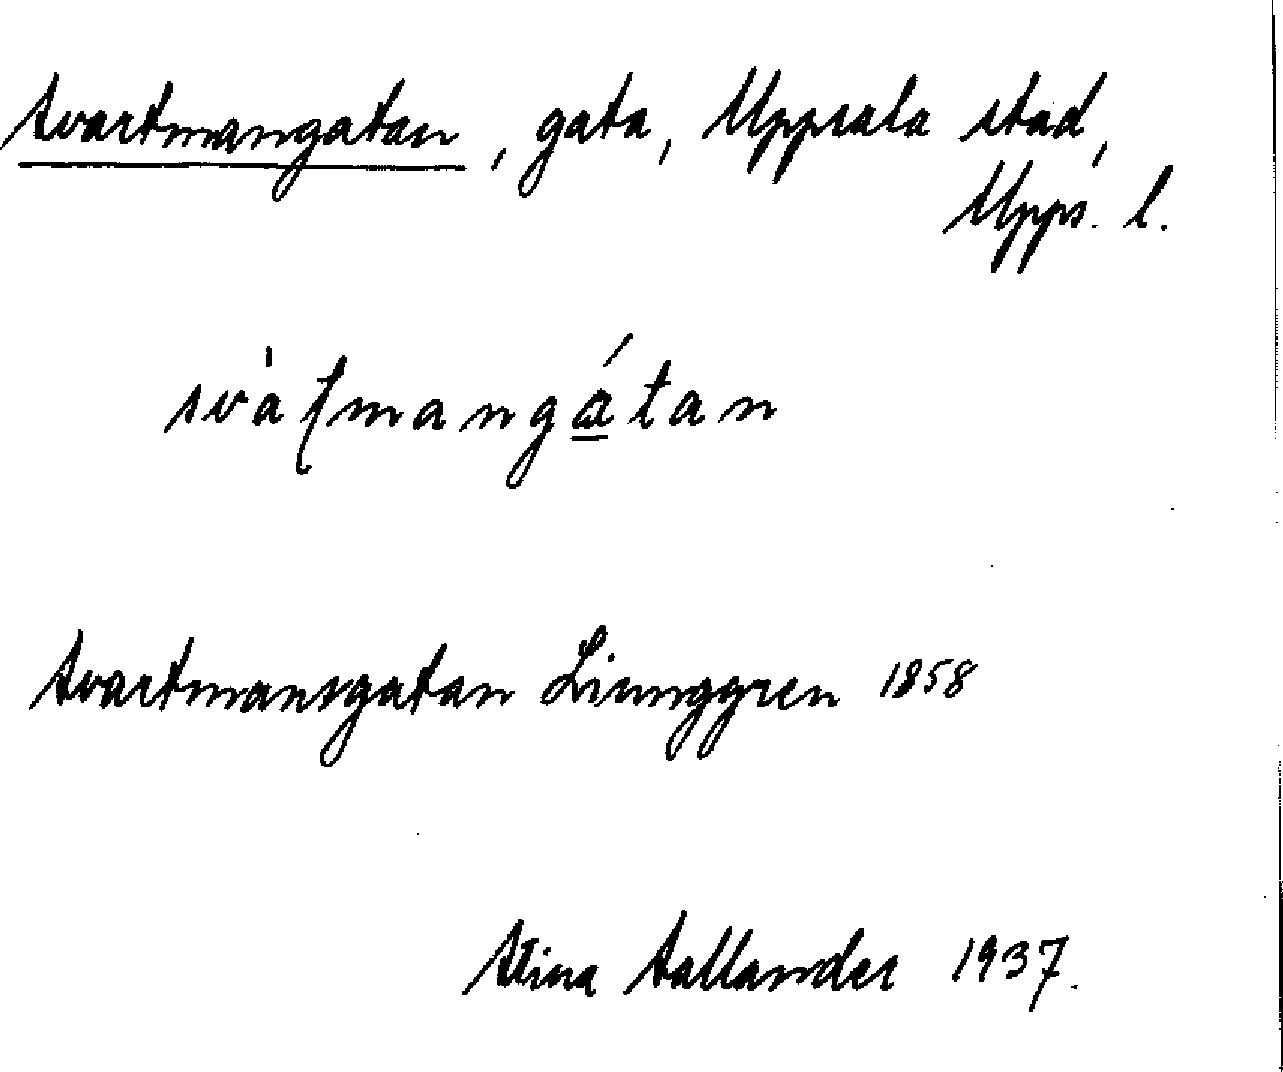 Svartmangatan, gata, Uppsala stad,
Upps. l.
Svartmansgatan Ljunggren 1858
Stina Sallander 1937.